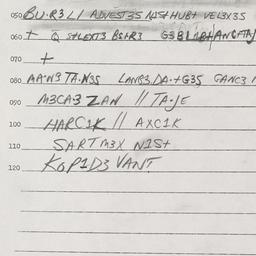 050 BU·R3L1 ADVEST3S N1St HUB+ VEL3X3S
060 + Q StLEXT3 BS+R3
070 +
080 AA·N3 TA·N3S LANG3/DA·+G3S GANC3
090 M3CA·3 ZAN // TA·JE
100 HARC1K // AXC1K
110 SARTM3X N1St
120 KOP1D3 VANT